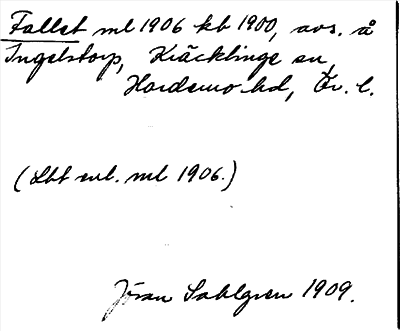 Fallet ml 1906 kb 1900, avs. å
Ingelstorp, Kräcklinge sn,
Hardemo hd, Ör. l.
(Lbt enl. ml 1906.)
Jöran Sahlgren 1909.